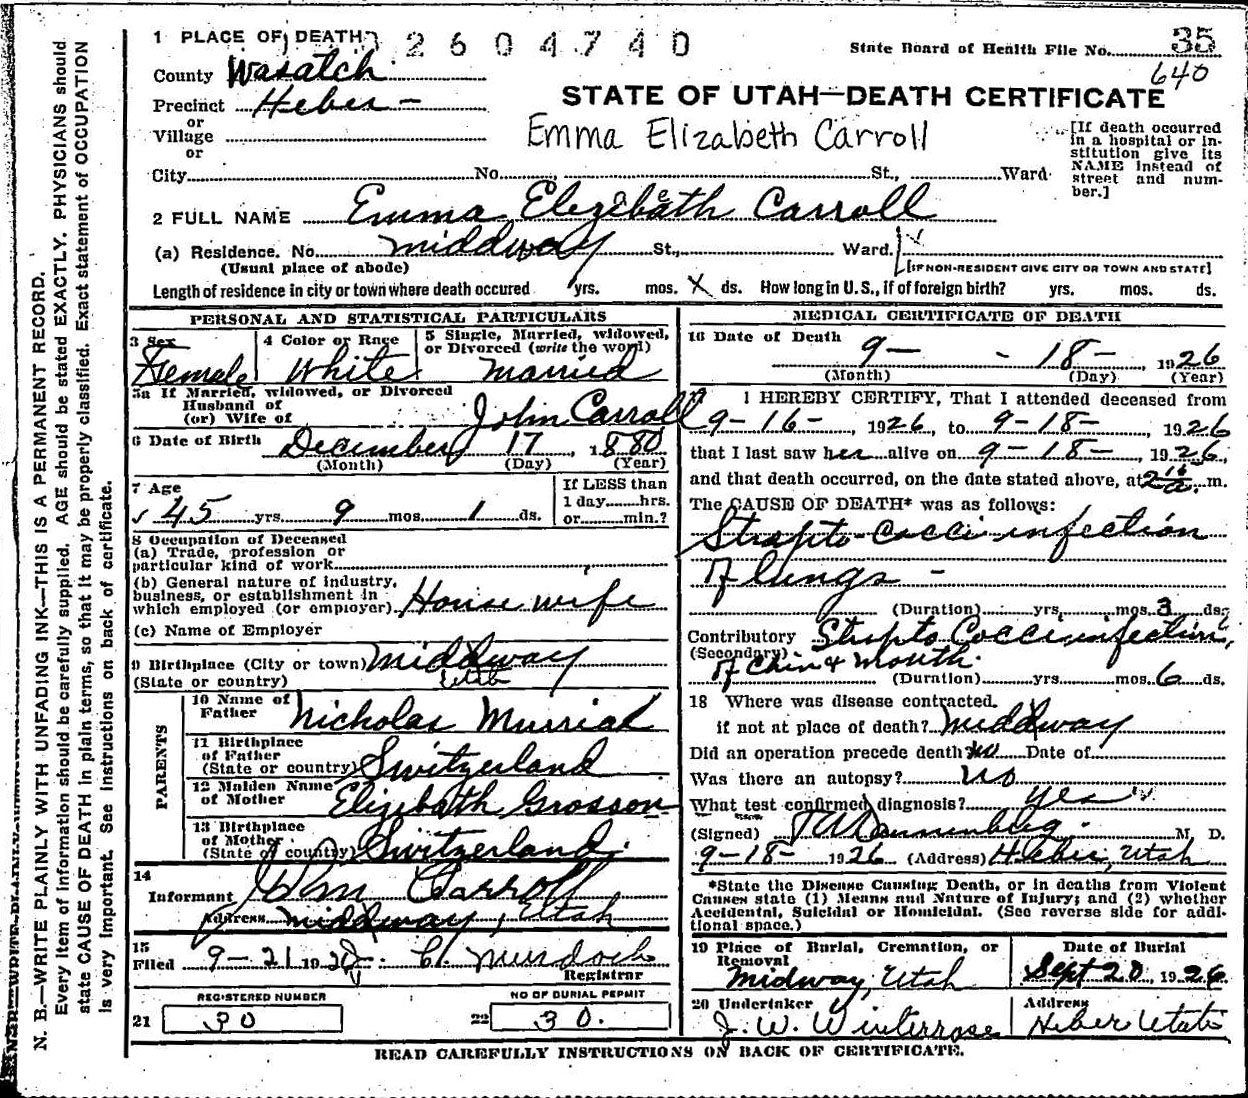 1 PLACE OF DEATH
2604740
State Board of Health File No. 35
640
County Wasatch
Precinct Heber -
or
Village
or
STATE OF UTAH—DEATH CERTIFICATE
Emma Elizabeth Carroll
[If death occurred
in a hospital or in-
stitution give its
NAME instead of
street and num-
ber.]
City No. St., Ward
2 FULL NAME Emma Elizebath Carroll
(a) Residence. No. Middway St., Ward.
(Usual place of abode) [IF NON-RESIDENT GIVE CITY OR TOWN AND STATE]
Length of residence in city or town where death occured yrs. mos. X ds. How long in U.S., if of foreign birth? yrs. mos. ds.
PERSONAL AND STATISTICAL PARTICULARS
3 Sex
Female
4 Color or Race
White
5 Single, Married, widowed,
or Divorced (write the word)
Married
5a If Married, widowed, or Divorced
Husband of
(or) Wife of John Carroll
6 Date of Birth December 17, 1880
(Month) (Day) (Year)
7 Age
45 yrs. 9 mos. 1 ds.
If LESS than
1 day hrs.
or min.?
8 Occupation of Deceased
(a) Trade, profession or
particular kind of work
(b) General nature of industry,
business, or establishment in
which employed (or employer) House wife
(c) Name of Employer
9 Birthplace (City or town) Middway
(State or country) Utah
PARENTS
10 Name of
Father Nicholas Murriak
11 Birthplace
of Father
(State or country) Switzerland
12 Maiden Name
of Mother Elizibath Grosson
13 Birthplace
of Mother
(State or country) Switzerland.
14
Informant Carroll
Address Middway, Utah
15
Filed 9-21 19 Murdoch
Registrar
REGISTERED NUMBER
21 30
NO OF BURIAL PERMIT
22 30.
MEDICAL CERTIFICATE OF DEATH
16 Date of Death 9- - 18-, 1926
(Month) (Day) (Year)
I HEREBY CERTIFY, That I attended deceased from
9-16-, 1926, to 9-18-, 1926
that I last saw her alive on 9-18-, 1926,
and that death occurred, on the date stated above, at 2 10 a. m.
The CAUSE OF DEATH* was as follows:
Strapto-cocci-infection
of lungs -
(Duration) yrs. mos. 3 ds.
Contributory Strapto Cocci infection,
(Secondary) of Chin & Mouth.
(Duration) yrs. mos. 6 ds.
18 Where was disease contracted.
if not at place of death? Middway
Did an operation precede death? no Date of
Was there an autopsy? no
What test confirmed diagnosis? yes
(Signed) M. D.
9-18- 1926 (Address) Heber, Utah
*State the Disease Causing Death, or in deaths from Violent
Causes state (1) Means and Nature of Injury; and (2) whether
Accidental, Suicidal or Homicidal. (See reverse side for addi-
tional space.)
19 Place of Burial, Cremation, or
Removal
Midway, Utah
Date of Burial
Sept 20, 1926
20 Undertaker
J. W. Winterrose
Address
Heber Utah
READ CAREFULLY INSTRUCTIONS ON BACK OF CERTIFICATE.
N. B.—WRITE PLAINLY WITH UNFADING INK—THIS IS A PERMANENT RECORD.
Every item of information should be carefully supplied. AGE should be stated EXACTLY. PHYSICIANS should
state CAUSE OF DEATH in plain terms, so that it may be properly classified. Exact statement of OCCUPATION
is very important. See instructions on back of certificate.